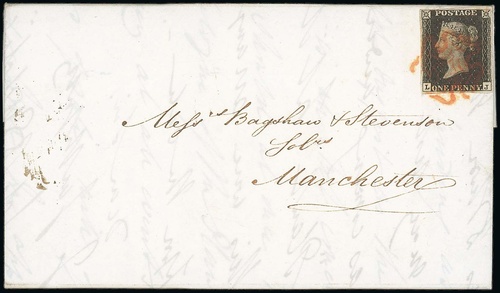 POSTAGE
L J
ONE PENNY
Messrs Bagshaw & Stevenson
Solrs
Manchester